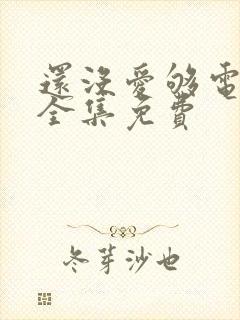 還沒愛够電
全集免費
冬芽沙也